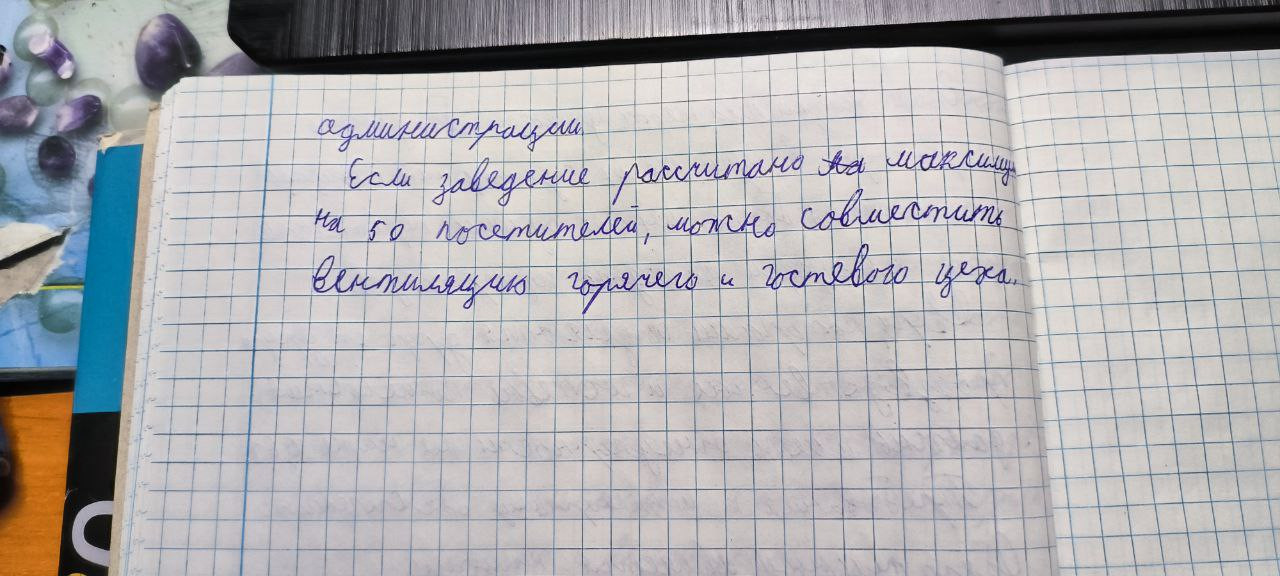 администрации.
Если заведение рассчитано на максимум
на 50 посетителей, можно совместить
вентиляцию горячего и гостевого цеха.